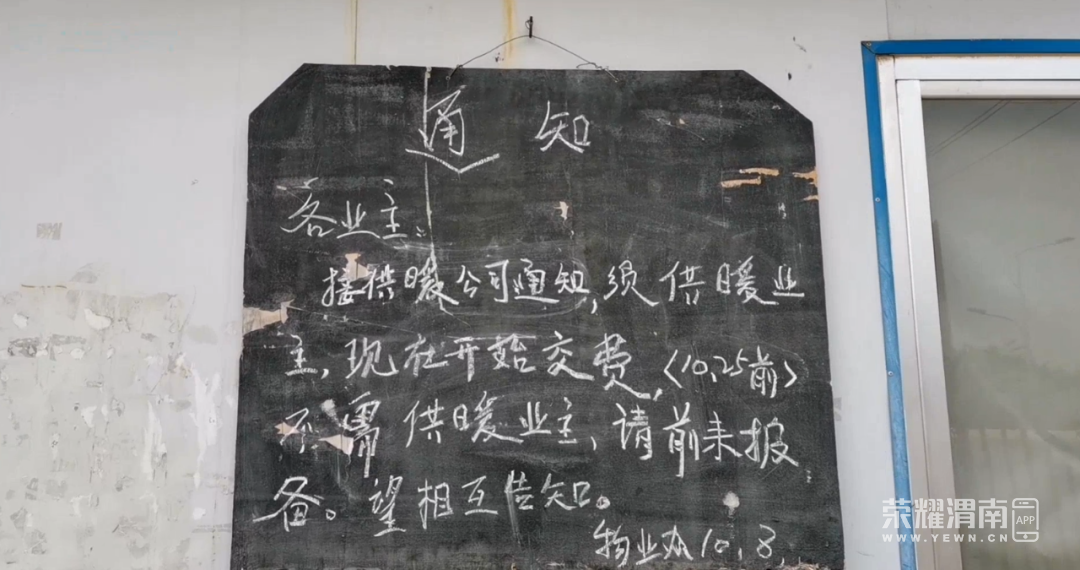 通知
各业主:
接供暖公司通知,须供暖业
主,现在开始交费,<10,25前>
不需供暖业主,请前来报
备。望相互传知。
物业办10,8,
荣耀渭南APP
WWW.YEWN.CN